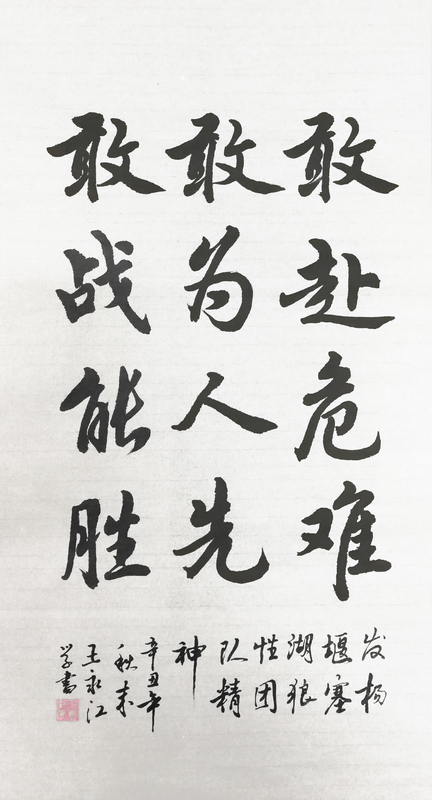 敢赴危难
敢为人先
敢战能胜
发扬
堰塞
湖狼
性团
队精
神
辛丑年
秋
王永江
学书